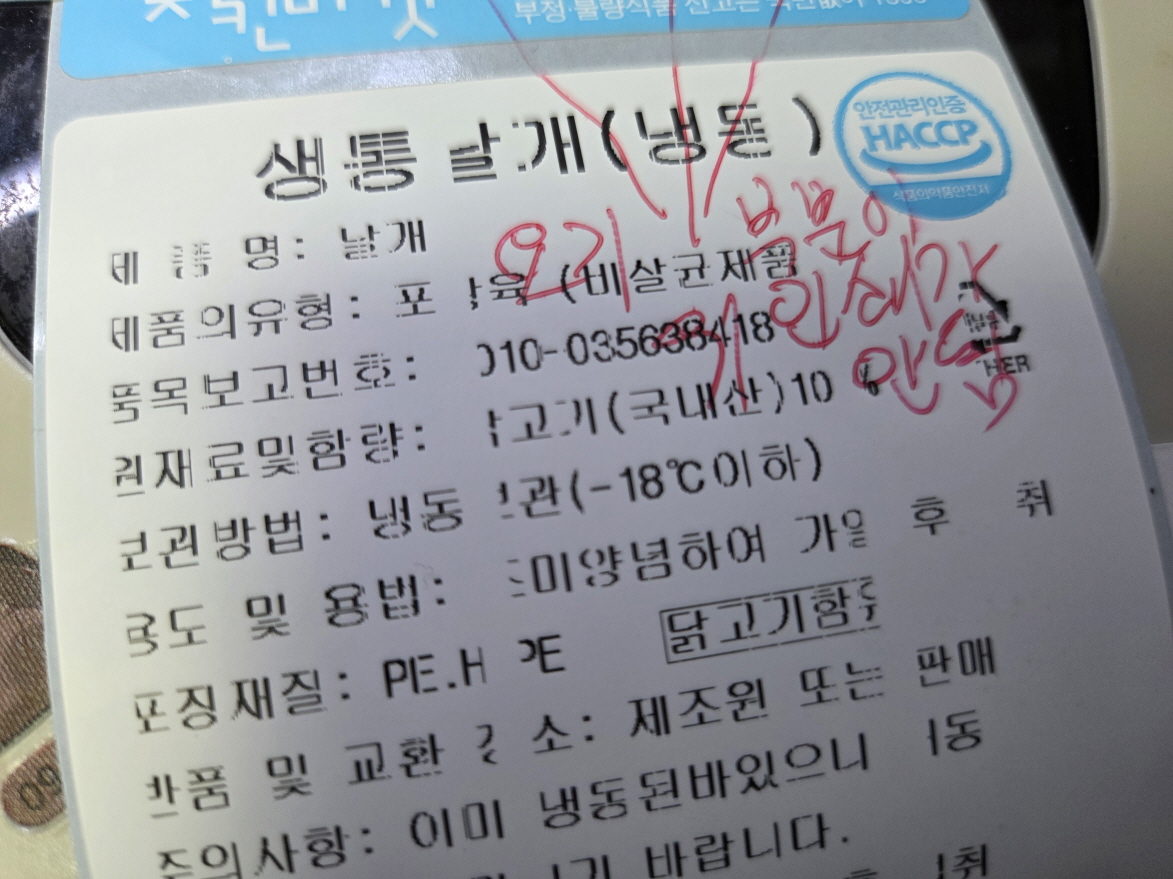 부정·불량식품 신고는 국번없이 1399
안전관리인증
HACCP
식품의약품안전처
생통날개(냉동)
제품명: 날개
제품의유형: 포장육 (비살균제품
010-035638418
품목보고번호:
원재료및함량: 닭고기(국내산)10
보관방법: 냉동보관(-18℃이하)
용도 및 용법: 조미양념하여 가열 후 취
포장재질: PE.H PE
닭고기함유
반품 및 교환 장소: 제조원 또는 판매
주의사항: 이미 냉동된바있으니
바랍니다.
여기 부분이
인쇄가
안됨